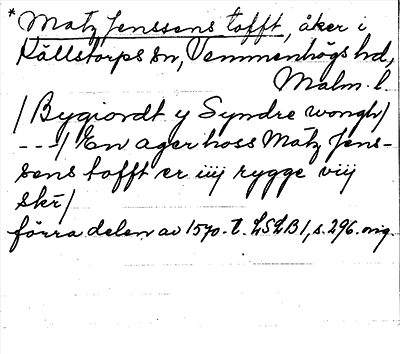 * Matz Jenssens tofft, åker i
Källstorps sn, Vemmenhögs hd,
Malm. l.
/ Bygiordt y Syndre wongh /
- - - / En ager hoss Matz Jens-
sens tofft er iiij rygge viij
skr̄ /
förra delen av 1570-t. LSLB 1, s. 296. orig.